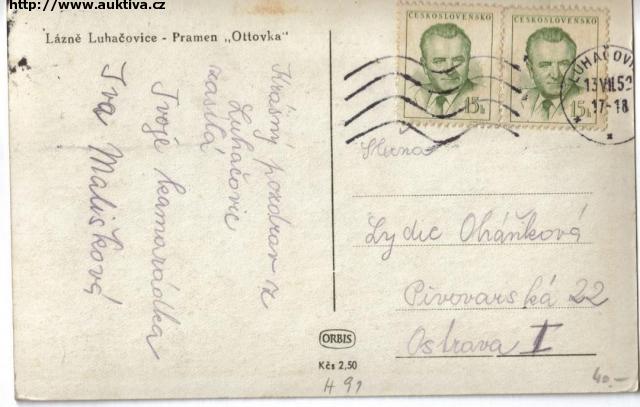 http://www.auktiva.cz
Lázně Luhačovice - Pramen „Ottovka"
Krásný pozdrav z
Luhačovic
zasílá
Tvoje kamarádka
Iva Mališková
ČESKOSLOVENSKO
15h
ČESKOSLOVENSKO
15h
LUHAČOVICE
13.VII.52
17-18
Slečna
Lydie Oháňková
Pivovarská 22
Ostrava I
ORBIS
Kčs 2,50
H 91
40.-